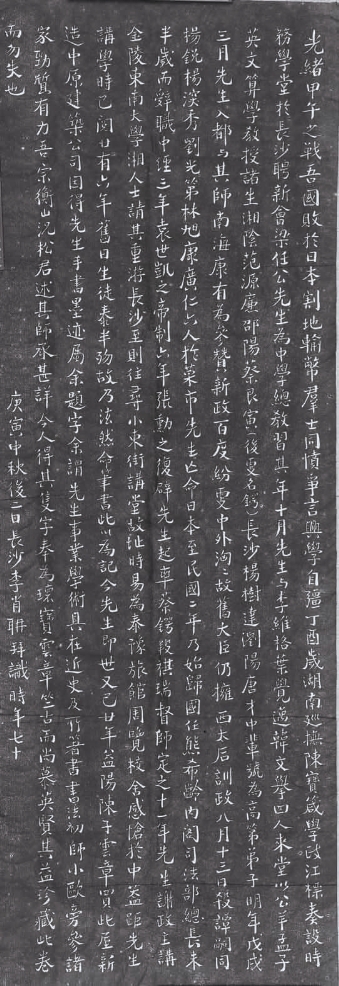 光緒甲午之戰吾國敗於日本割地輸幣羣士同憤爭言興學自彊丁酉歲湖南巡撫陳寶箴學政江標奏設時
務學堂於長沙聘新會梁任公先生為中學總教習其年十月先生与李維格葉覺邁韓文舉四人來堂以公羊孟子
英文算學教授諸生湘陰范源廉邵陽蔡艮寅後更名鍔長沙楊樹達瀏陽唐才中輩號為高第弟子明年戊戌
三月先生入都与其師南海康有為參贊新政百度紛更中外洶洶故舊大臣仍擁西太后訓政八月十三日後譚嗣同
楊銳楊深秀劉光第林旭康廣仁六人於菜市先生亡命日本至民國二年乃始歸國任熊希齡內閣司法部總長未
半歲而辭職中經三年袁世凱之帝制六年張勳之復辟先生起草蔡鍔段祺瑞督師定之十一年先生謝政主講
金陵東南大學湘人士請其重游長沙至則往尋小東街講堂故址時易為泰豫旅館周覽校舍感愴於中蓋距先生
講學時已閱廿有六年舊日生徒泰半物故乃泫然命筆書此以為記今先生即世又已廿年益陽陳子雲章買此屋新
造中原建築公司因得先生手書墨迹屬余題字余謂先生事業學術具在近史及所箸書書法初師小歐旁參諸
家勁質有力吾宗衡山沉松君述其師承甚詳今人得其隻字奉為瓌寶雲章竺古而尚慕英賢其益珍藏此卷
而勿失也
庚寅中秋後二日長沙李肖聃拜識時年七十